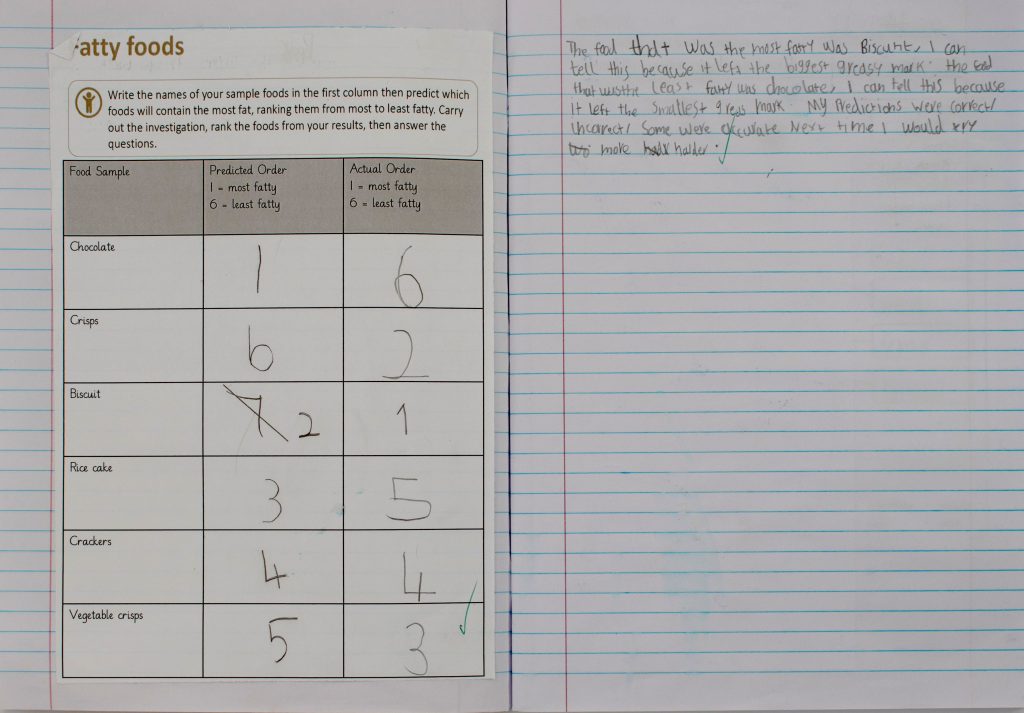 atty foods
Write the names of your sample foods in the first column then predict which
foods will contain the most fat, ranking them from most to least fatty. Carry
out the investigation, rank the foods from your results, then answer the
questions.
Food Sample
Predicted Order
1 = most fatty
6 = least fatty
Actual Order
1 = most fatty
6 = least fatty
Chocolate 1 6
Crisps 6 2
Biscuit 7 2 1
Rice cake 3 5
Crackers 4 4
Vegetable crisps 5 3
The food that was the most fatty was Biscuit, I can
tell this because it left the biggest greasy mark. the food
that was the least fatty was chocolate, I can tell this because
it left the smallest mark. My Predictions were correct/
incorrect/ Some were Next time I would try
more harder.